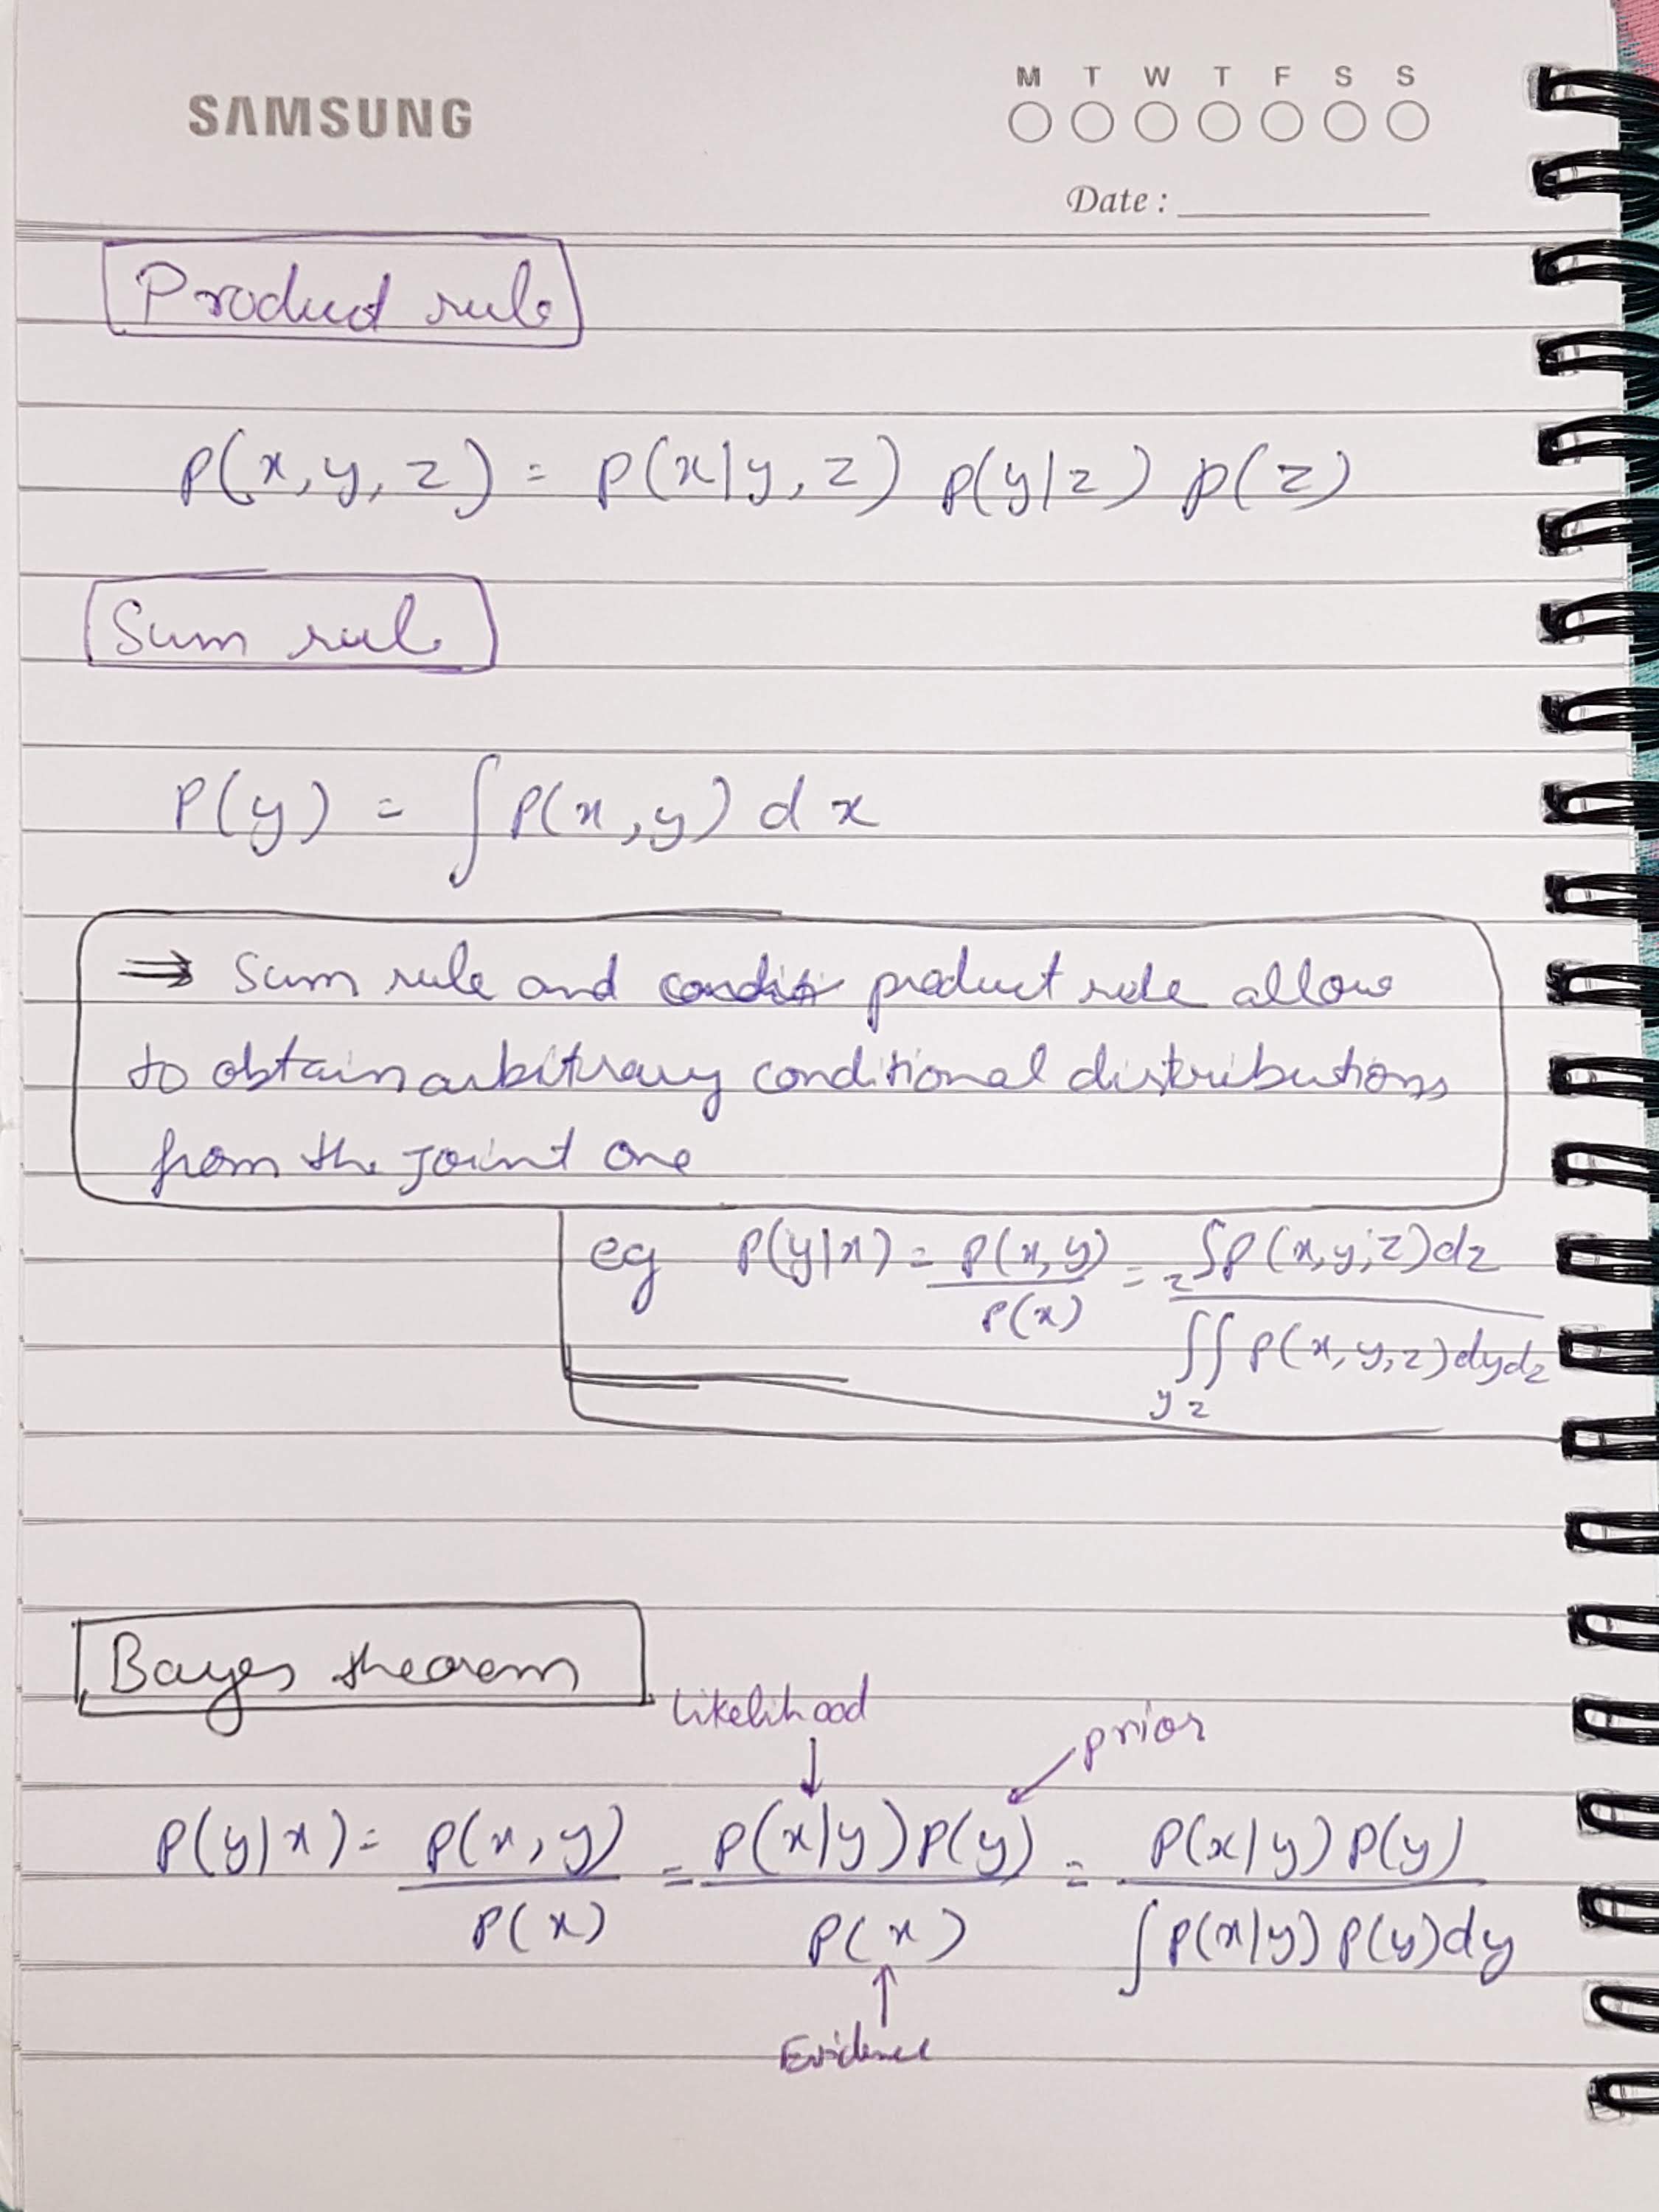 SAMSUNG
M T W T F S S
Date :
Product rule
p(x, y, z) = p(x|y, z) p(y|z) p(z)
Sum rule
P(y) = ∫ P(x, y) dx
⇒ Sum rule and product rule allow
to obtain arbitrary conditional distributions
from the joint one
eg P(y|x) = P(x, y) / P(x) = ∫z P(x, y, z) dz / ∫∫ y z P(x, y, z) dy dz
Bayes theorem
Likelihood
prior
P(y|x) = P(x, y) / P(x) = P(x|y) P(y) / P(x) = P(x|y) P(y) / ∫ P(x|y) P(y) dy
Evidence